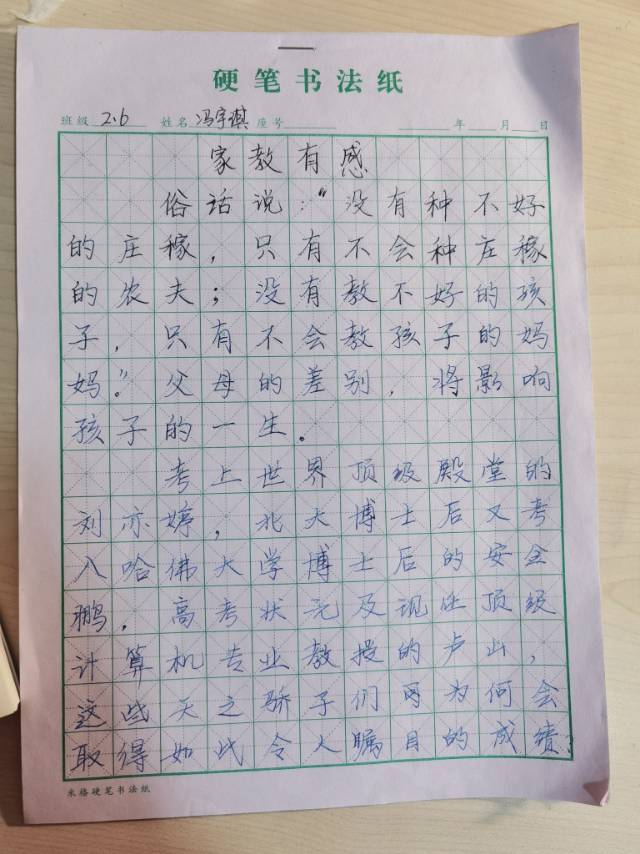 硬笔书法纸
班级 2.6 姓名 冯宇琪 座号 年 月 日
家教有感
俗话说：“没有种不好
的庄稼，只有不会种庄稼
的农夫；没有教不好的孩
子，只有不会教孩子的妈
妈。”父母的差别，将影响
孩子的一生。
考上世界顶级殿堂的
刘亦婷，北大博士后又考
入哈佛大学博士后的安金
鹏，高考状元及现任顶级
计算机专业教授的卢山，
这些天之骄子们为何会
取得如此令人瞩目的成绩
米格硬笔书法纸